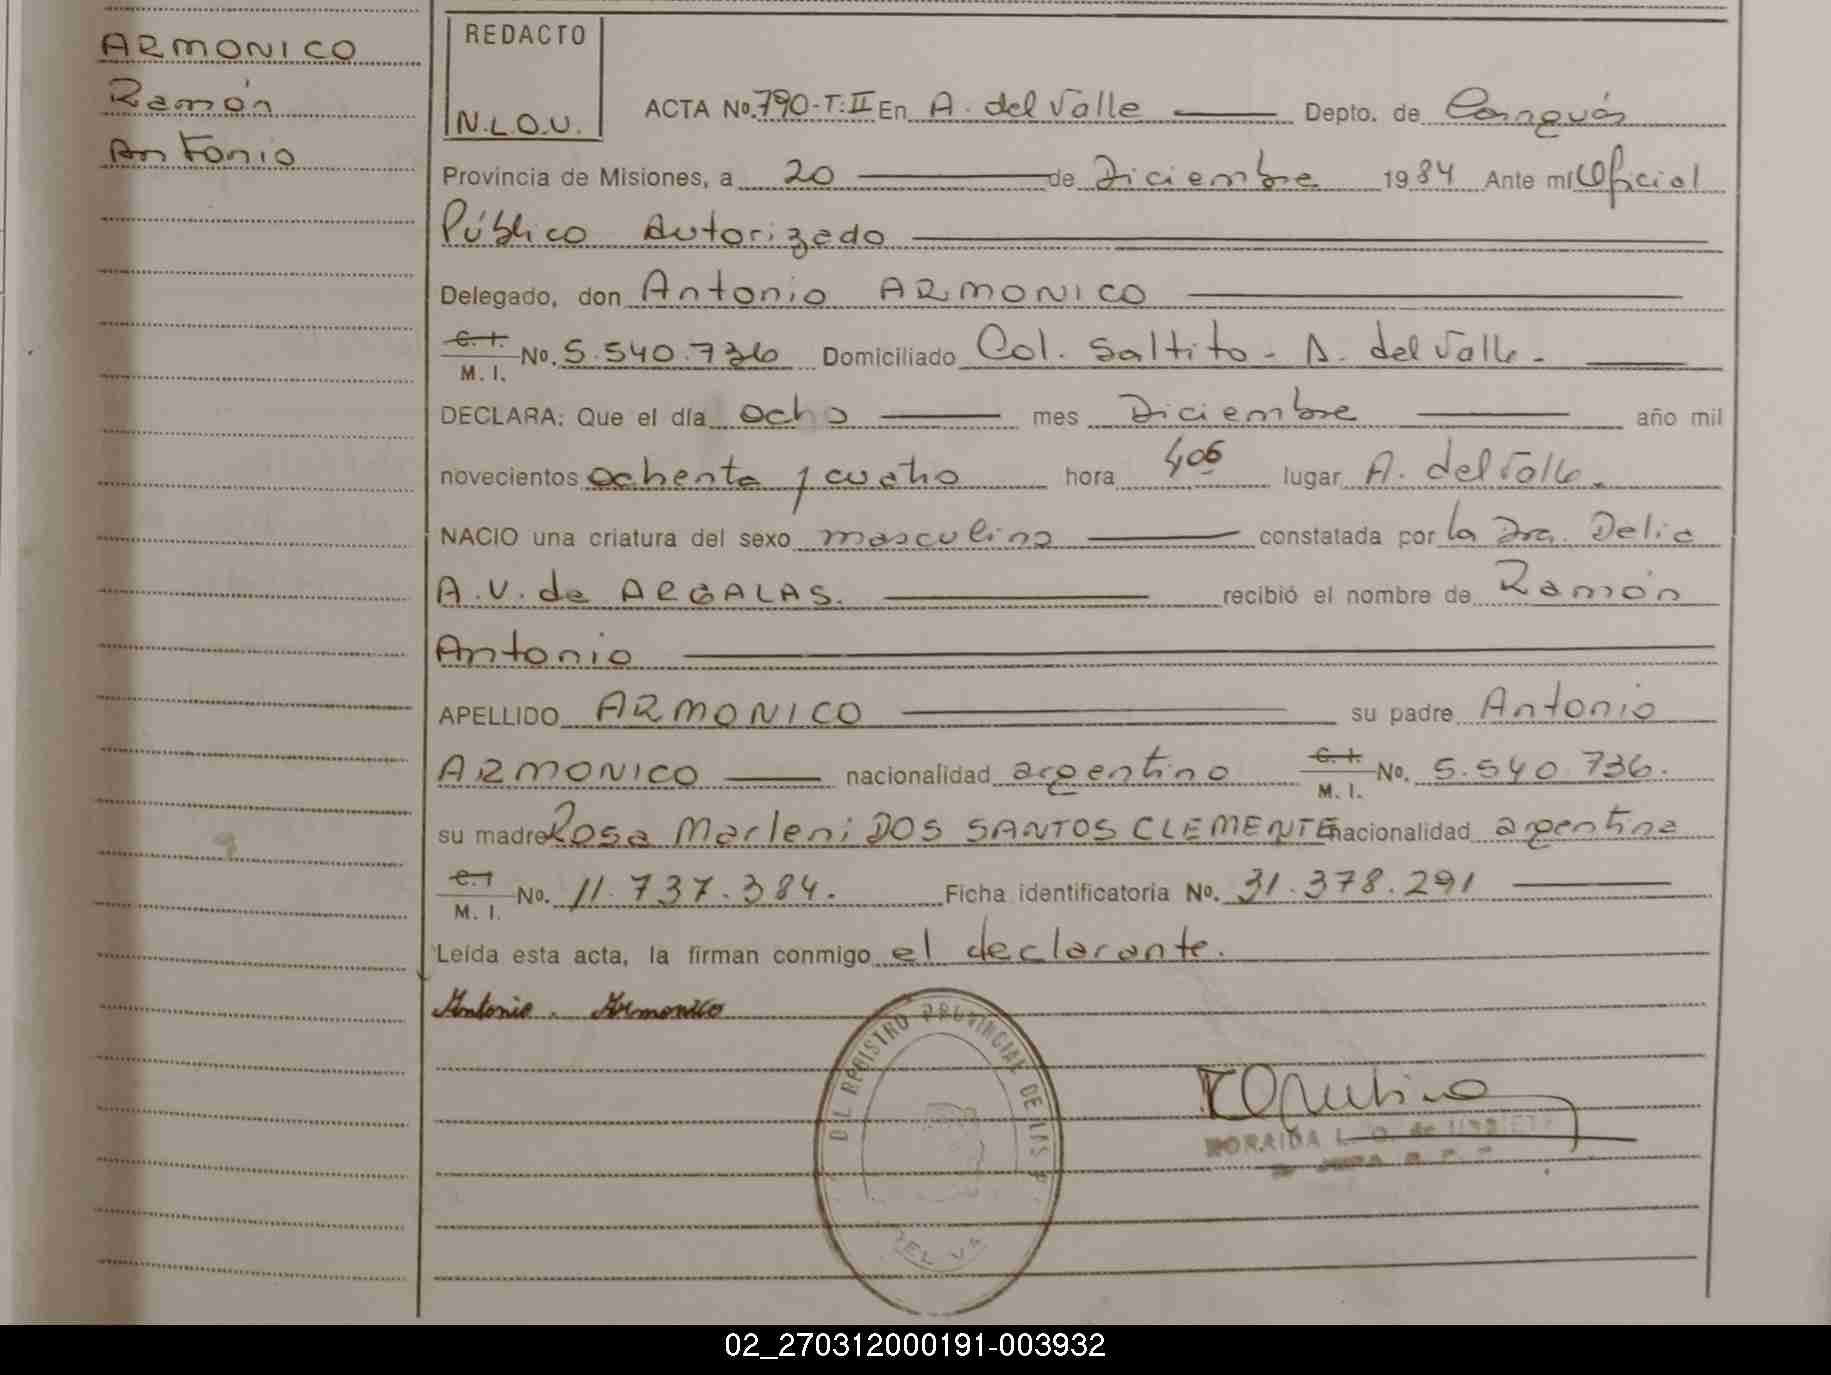 ARMONICO
Ramón
Antonio
REDACTO
N.L.O.U.
ACTA No. 790-T:II En A. del Valle Depto. de Cainguás
Provincia de Misiones, a 20 de Diciembre 1984 Ante mi Oficial
Público Autorizado
Delegado, don Antonio ARMONICO
C.I. M.I. No. 5.540.736 Domiciliado Col. Saltito - A. del Valle -
DECLARA: Que el día ocho mes Diciembre año mil
novecientos ochenta y cuatro hora 405 lugar A. del Valle.
NACIO una criatura del sexo masculino constatada por la Dra. Delia
A.V. de ARGALAS. recibió el nombre de Ramón
Antonio
APELLIDO ARMONICO su padre Antonio
ARMONICO nacionalidad argentino C.I. M.I. No. 5.540.736.
su madre Rosa Marleni DOS SANTOS CLEMENTE nacionalidad argentina
C.I M.I. No. 11.737.384. Ficha identificatoria No. 31.378.291
Leída esta acta, la firman conmigo el declarante.
Antonio. Armonico
DEL REGISTRO PROVINCIAL DE LAS P
DEL VA
L. O. de
02_270312000191-003932